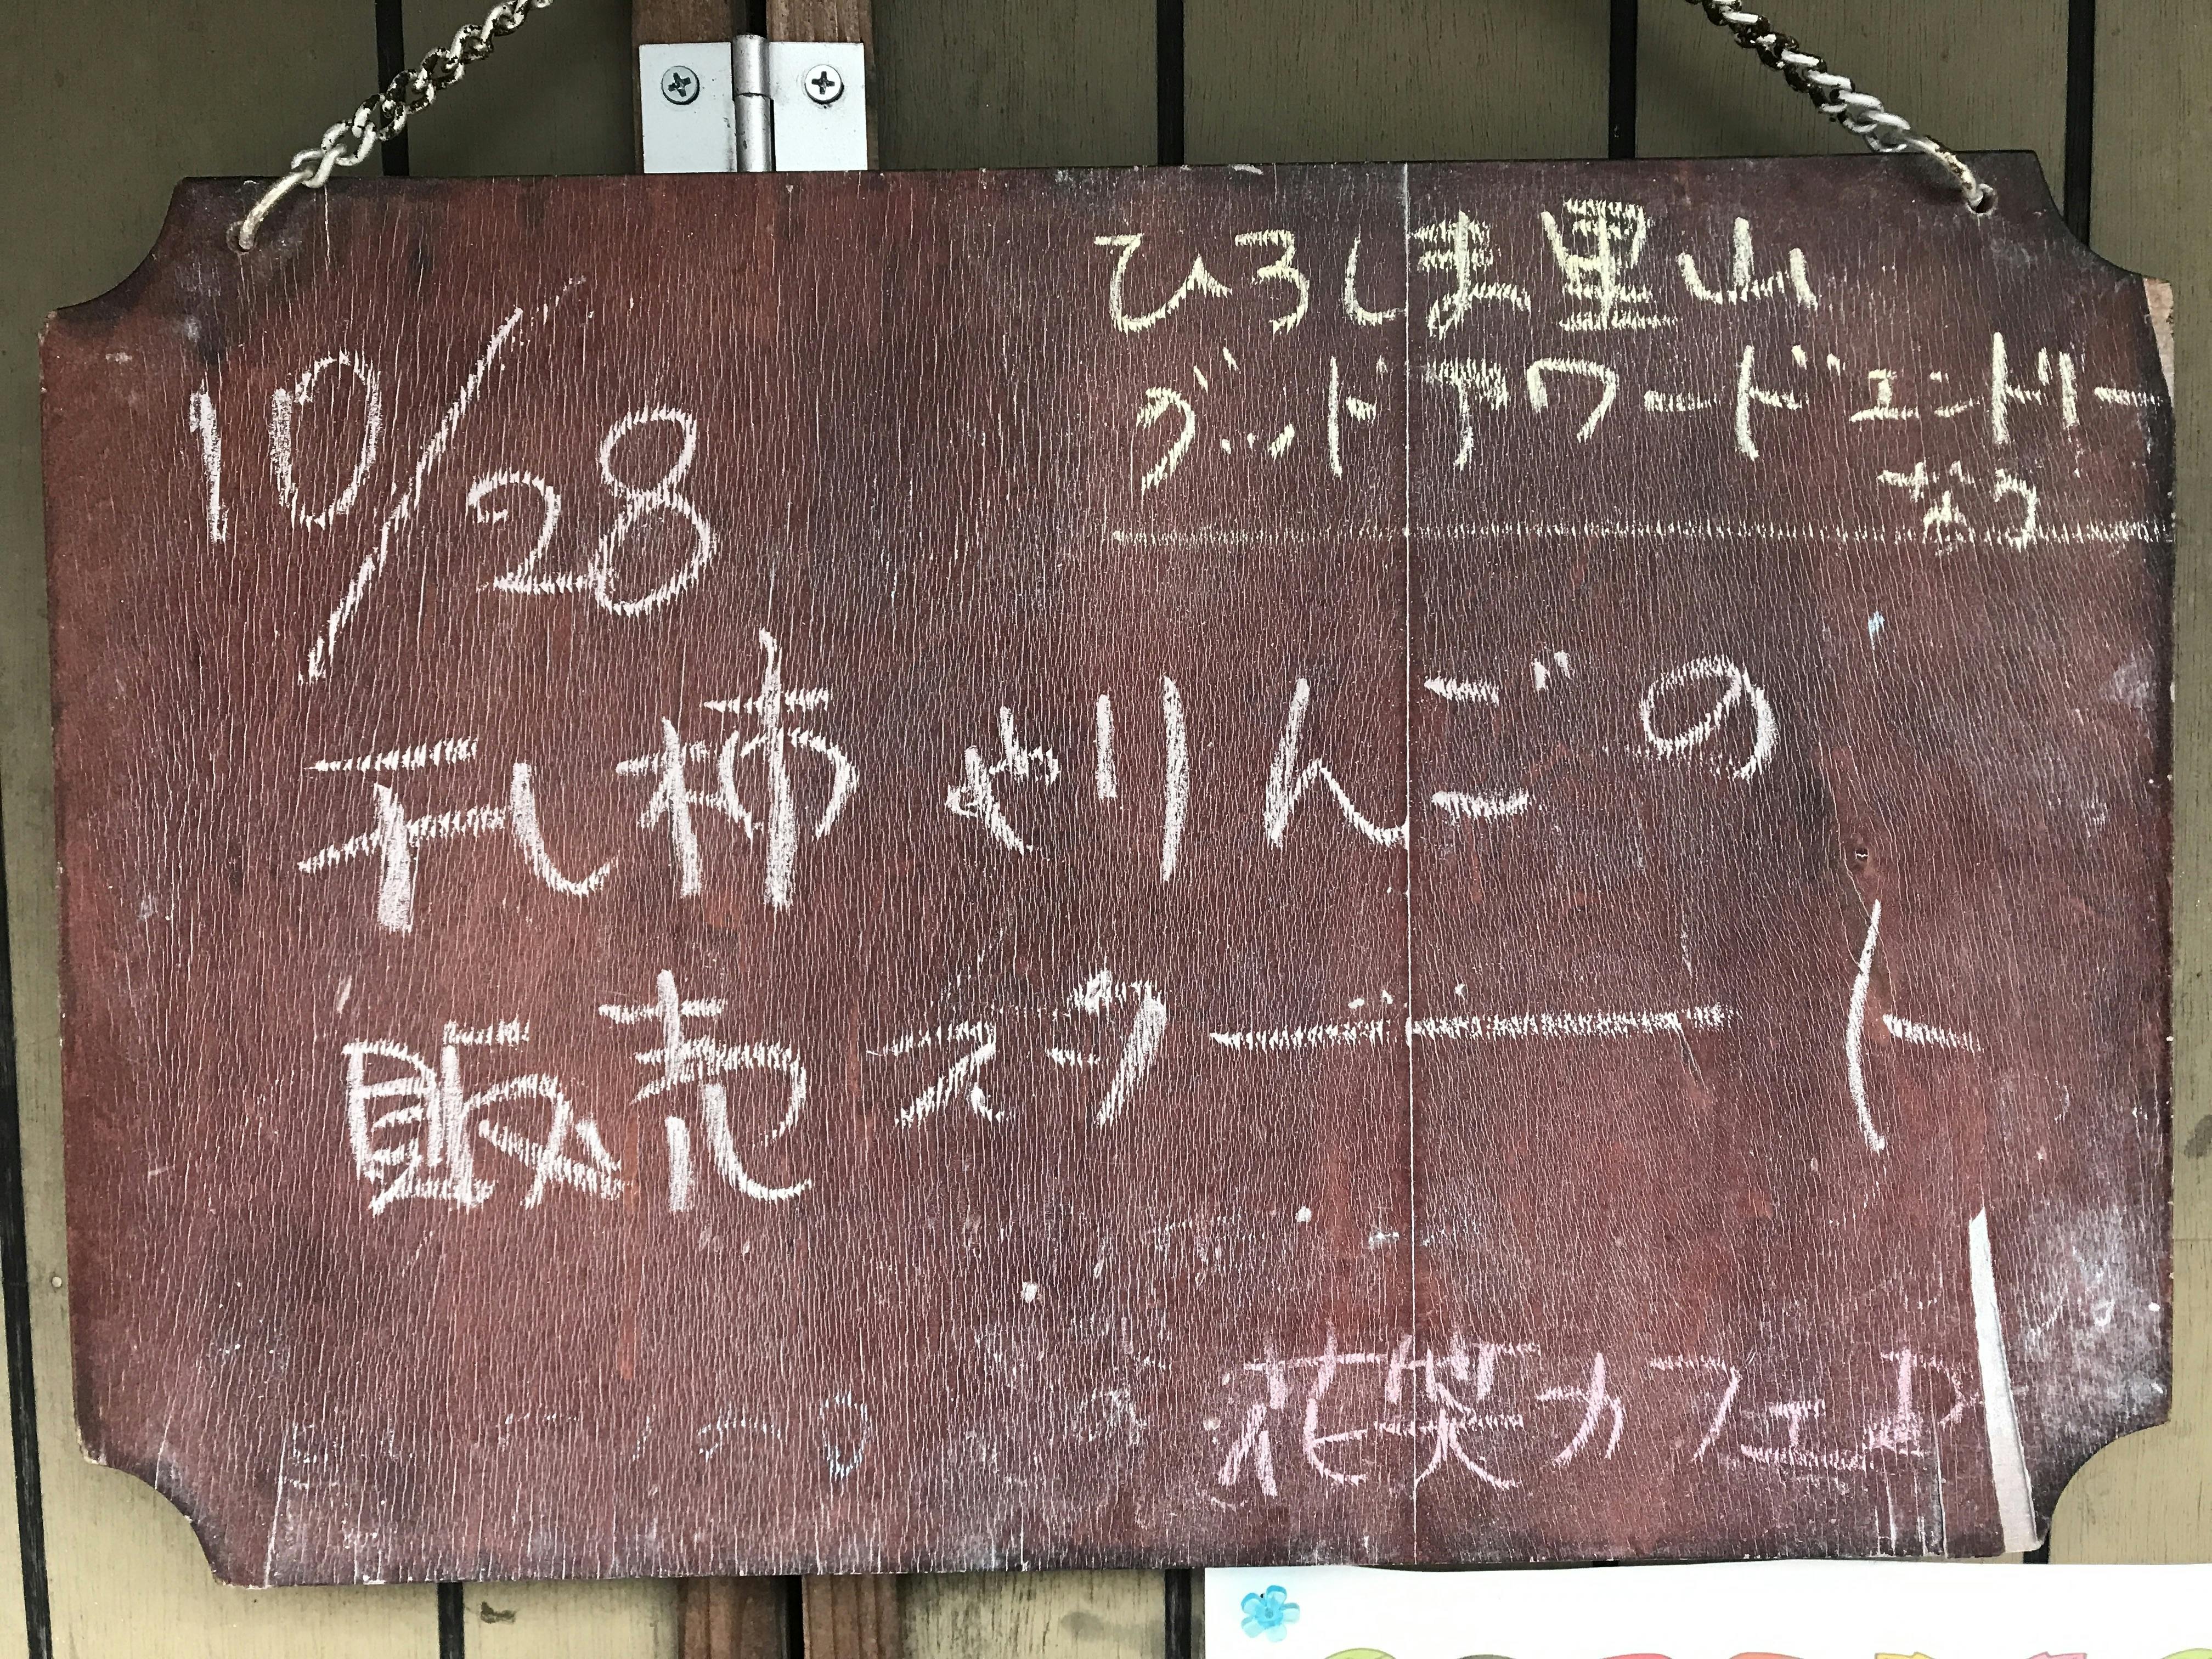 ひろしま里山
グッドアワードエントリー
10/28
干し柿やりんごの
販売スタート
花笑カフェ